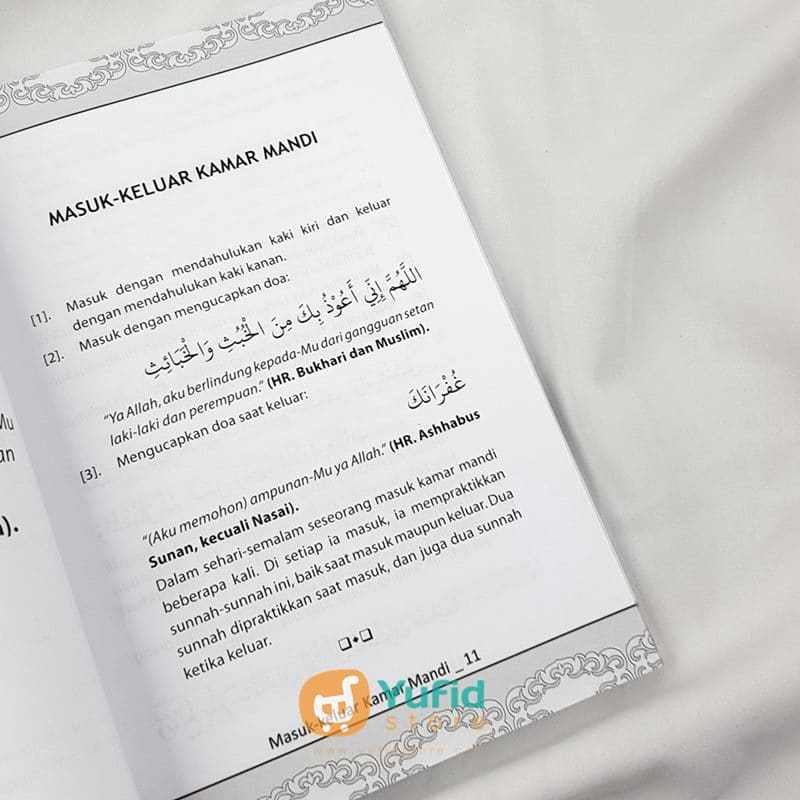 MASUK-KELUAR KAMAR MANDI
[1]. Masuk dengan mendahulukan kaki kiri dan keluar
dengan mendahulukan kaki kanan.
[2]. Masuk dengan mengucapkan doa:
اللَّهُمَّ إِنِّي أَعُوْذُ بِكَ مِنَ الْخُبُثِ وَالْخَبَائِثِ
"Ya Allah, aku berlindung kepada-Mu dari gangguan setan
laki-laki dan perempuan." (HR. Bukhari dan Muslim).
[3]. Mengucapkan doa saat keluar:
غُفْرَانَكَ
"(Aku memohon) ampunan-Mu ya Allah." (HR. Ashhabus
Sunan, kecuali Nasai).
Dalam sehari-semalam seseorang masuk kamar mandi
beberapa kali. Di setiap ia masuk, ia mempraktikkan
sunnah-sunnah ini, baik saat masuk maupun keluar. Dua
sunnah dipraktikkan saat masuk, dan juga dua sunnah
ketika keluar.
Masuk-keluar Kamar Mandi _ 11
Yufid
store